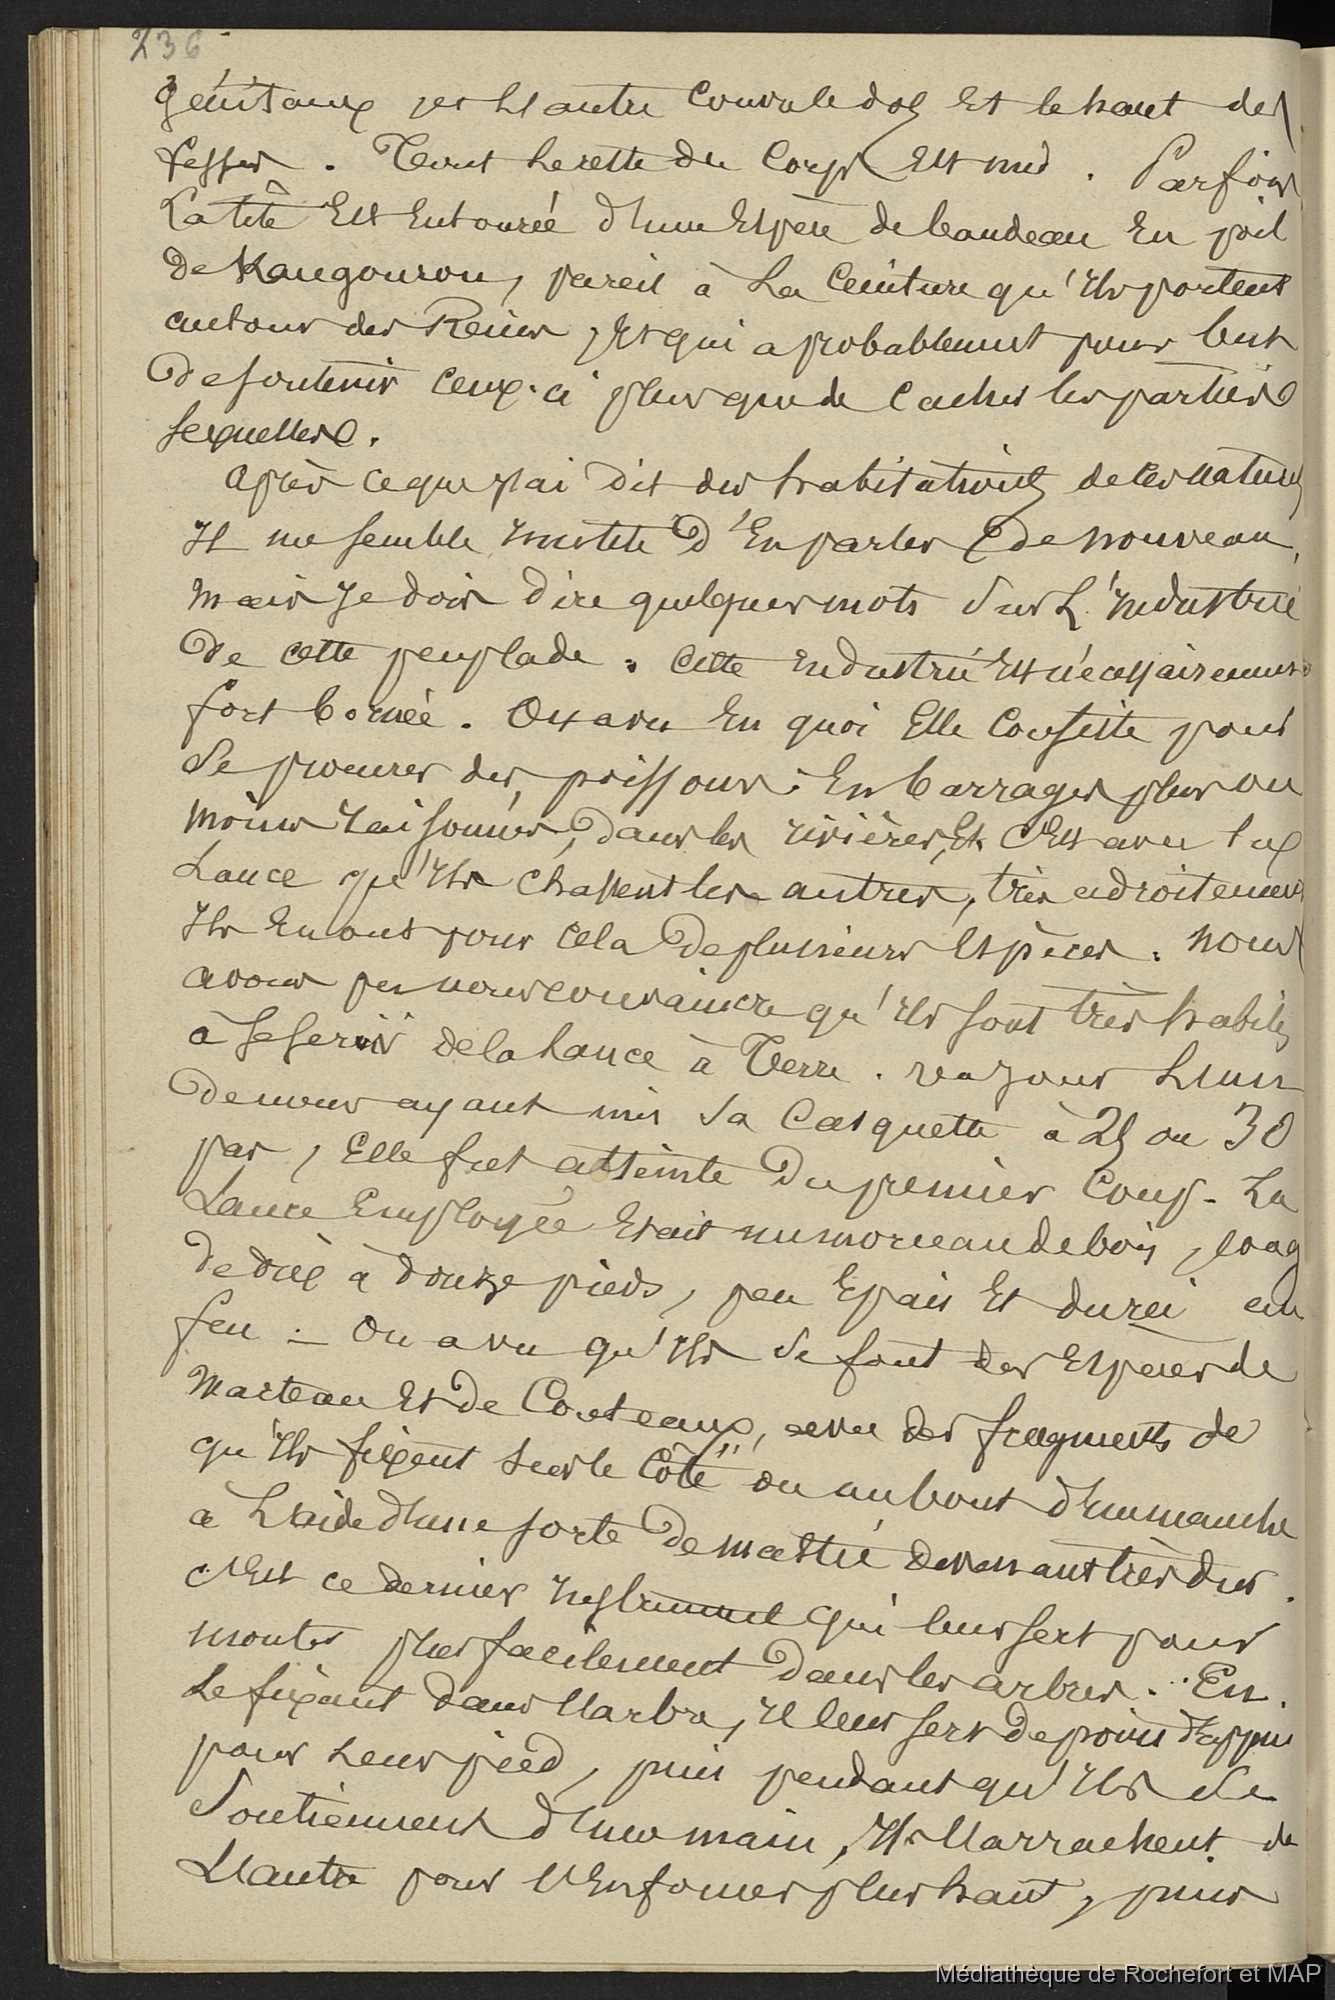 236
génitaux et l'autre couvre le dos et le haut des
fesses. Tout le reste du corps est nud. Parfois
La tête est entourée d'une espèce de bandeau en poil
de Kangourou, pareil à la ceinture qu'ils portent
autour des Reins, et qui a probablement pour but
de soutenir ceux-ci plus que de cacher les parties
sexuelles.
Après ce que j'ai dit des habitations de ces naturels
Il me semble inutile d'en parler de nouveau,
mais je dois dire quelques mots sur l'industrie
de cette peuplade. Cette industrie est nécessairement
fort bornée. On a vu en quoi elle consiste pour
se procurer des poissons. En barrages plus ou
moins raisonnés, dans les rivières, et c'est avec la
Lance qu'ils chassent les autres, très adroitement
Ils en ont pour cela de plusieurs espèces. nous
avons pu nous convaincre qu'ils sont très habiles
à se servir de la lance à Terre. un jour l'un
de nous ayant mis sa casquette à 25 ou 30
pas, elle fut atteinte du premier coup. La
Lance employée était un morceau de bois, long
de dix à douze pieds, peu épais et durci au
feu. — On a vu qu'ils se font des espèces de
marteau et de Couteaux, avec des fragments de
qu'ils fixent sur le côté ou au bout d'un manche
à l'aide d'une sorte de mastic devenant très dur.
c'est ce dernier instrument qui leur sert pour
monter plus facilement dans les arbres. En
le fixant dans l'arbre, il leur sert de point d'appui
pour leur pied, puis pendant qu'ils se
soutiennent d'une main, ils l'arrachent de
L'autre pour l'enfoncer plus haut, puis
Médiathèque de Rochefort et MAP